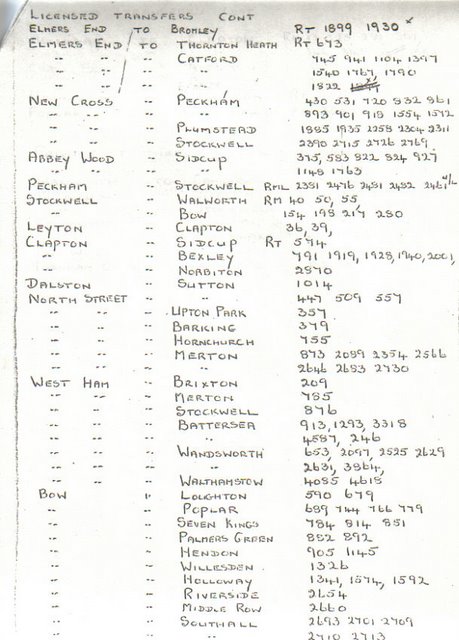 LICENSED TRANSFERS CONT
ELMERS END TO BROMLEY RT 1899 1930 x
ELMERS END TO THORNTON HEATH RT 673
" " / " CATFORD 745 941 1104 1397
" " " " 1540 1767, 1790
" " " " 1822
NEW CROSS " PECKHAM 430 531 720 832 861
" " " " 893 901 918 1554 1572
" " " PLUMSTEAD 1885 1935 2258 2304 2311
" " " STOCKWELL 2390 2715 2726 2769
ABBEY WOOD " SIDCUP 375, 583 822 824 927
" " " " 1148 1763
PECKHAM " STOCKWELL RML 2381 2476 2481 2482 2461
STOCKWELL " WALWORTH RM 40 50, 55
" " BOW 154 198 217 280
LEYTON " CLAPTON 36, 39,
CLAPTON " SIDCUP RT 574
" " BEXLEY 791 1919, 1928, 1940, 2001,
" " NORBITON 2870
DALSTON " SUTTON 1014
NORTH STREET " " 447 509 557
" " " UPTON PARK 357
" " " BARKING 379
" " " HORNCHURCH 755
" " " MERTON 873 2089 2354 2566
" " " " 2646 2683 2730
WEST HAM " BRIXTON 209
" " " MERTON 785
" " " STOCKWELL 876
" " " BATTERSEA 913, 1293, 3318
" " " " 4587, 246
" " " WANDSWORTH 653, 2097, 2525 2629
" " " " 2631, 3864,
" " " WALTHAMSTOW 4085 4618
BOW " LOUGHTON 590 679
" " POPLAR 689 744 766 779
" " SEVEN KINGS 784 814 851
" " PALMERS GREEN 882 892
" " HENDON 905 1145
" " WILLESDEN 1326
" " HOLLOWAY 1341, 1574, 1592
" " RIVERSIDE 2654
" " MIDDLE ROW 2660
" " SOUTHALL 2693 2701 2709
" " " 2710 2713